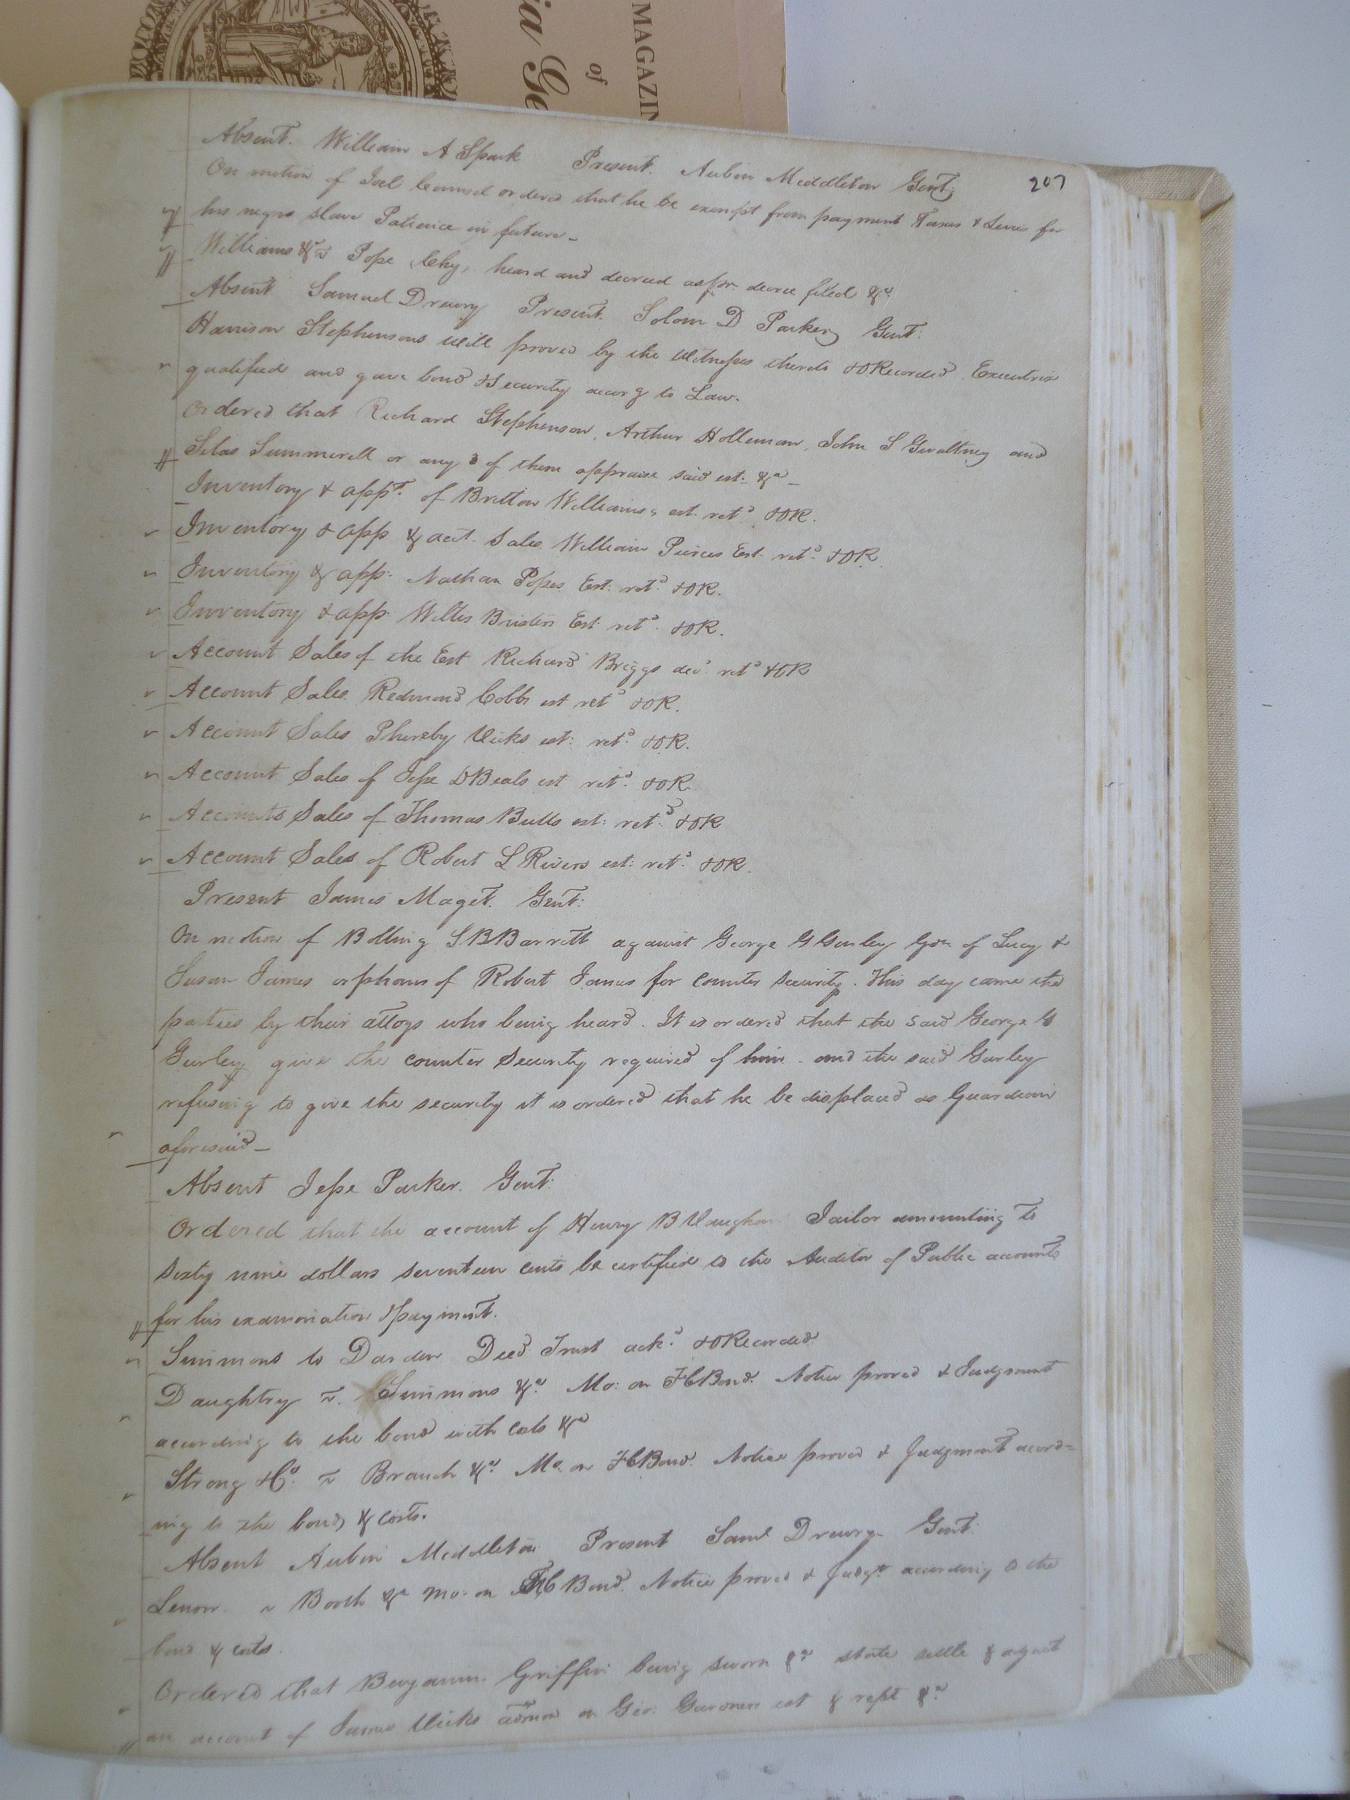 MAGAZIN
of
ia Ge
207
Absent. William A Spark Present. Aubin Middleton Gent:
On motion of Joel ordered that he be exempt from payment Taxes & Levies for
his negro slave Patience in future –
Williams &a vs Pope Chy, heard and decreed as pr decree filed &a
Absent Samuel Drewry Present. Solom D Parker Gent:
Harrison Stephensons will proved by the Witnesses thereto & O Recorded. Executrix
qualified and gave bond & Security accorg to Law.
Ordered that Richard Stephenson, Arthur Holleman, John S Gwaltney and
Silas Summerell or any 3 of them appraise said est. &a –
Inventory & appt. of Britton Williams, est. retd. & OR.
Inventory & app & acct. Sales William Pierces Est. retd. & OR
Inventory & app. Nathan Popes Est. retd. & OR.
Inventory & app. Willis Bristers Est. retd. & OR.
Account Sales of the Est Richard Briggs decd retd & OR
Account Sales Redmond Cobbs est retd & OR.
Account Sales Phereby Vicks est: retd. & OR.
Account Sales of Jesse D Beals est retd. & OR
Accounts Sales of Thomas Butts est: retd. & OR
Account Sales of Robert L Rivers est: retd. & OR.
Present James Maget. Gent:
On motion of Bolling S. B Barrett against George G Gurley Gdn of Lucy &
Susan James orphans of Robert James for counter security. This day came the
parties by their attoys who being heard. It is ordered that the said George G
Gurley give the counter security required of him – and the said Gurley
refusing to give the security it is ordered that he be displaced as Guardian
aforesaid –
Absent Jesse Parker. Gent:
Ordered that the account of Henry B Vaughan Jailor amounting to
Sixty nine dollars seventeen cents be certified to the Auditor of Public accounts
for his examination & payment.
Simmons to Darden Deed Trust ackd. & O Recorded
Daughtry vs. Simmons &a. Mo: on FC Bond. Notice proved & Judgment
according to the bond with Costs &a
Strong & Co. vs Branch &a. Mo. on FC Bond. Notice proved & Judgment accord=
ing to the bond & costs.
Absent Aubin Middleton Present Saml Drewry Gent:
Lenow vs Booth &a Mo: on FC Bond. Notice proved & Judgt according to the
bond & costs.
Ordered that Benjamin Griffin being sworn &a state settle & adjust
an account of James Vicks admor on Geo: Gurners est & rept &a